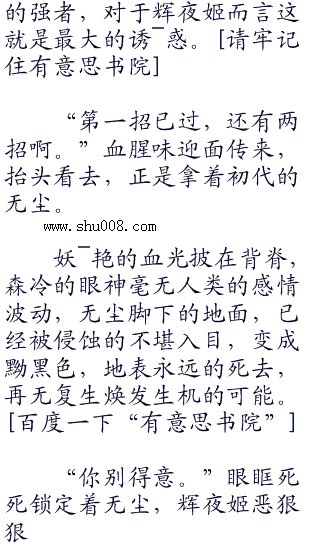 的强者，对于辉夜姬而言这
就是最大的诱¯惑。[请牢记
住有意思书院]
“第一招已过，还有两
招啊。”血腥味迎面传来，
抬头看去，正是拿着初代的
无尘。
www.shu008.com
妖¯艳的血光披在背脊，
森冷的眼神毫无人类的感情
波动，无尘脚下的地面，已
经被侵蚀的不堪入目，变成
黝黑色，地表永远的死去，
再无复生焕发生机的可能。
[百度一下“有意思书院”]
“你别得意。”眼眶死
死锁定着无尘，辉夜姬恶狠
狠